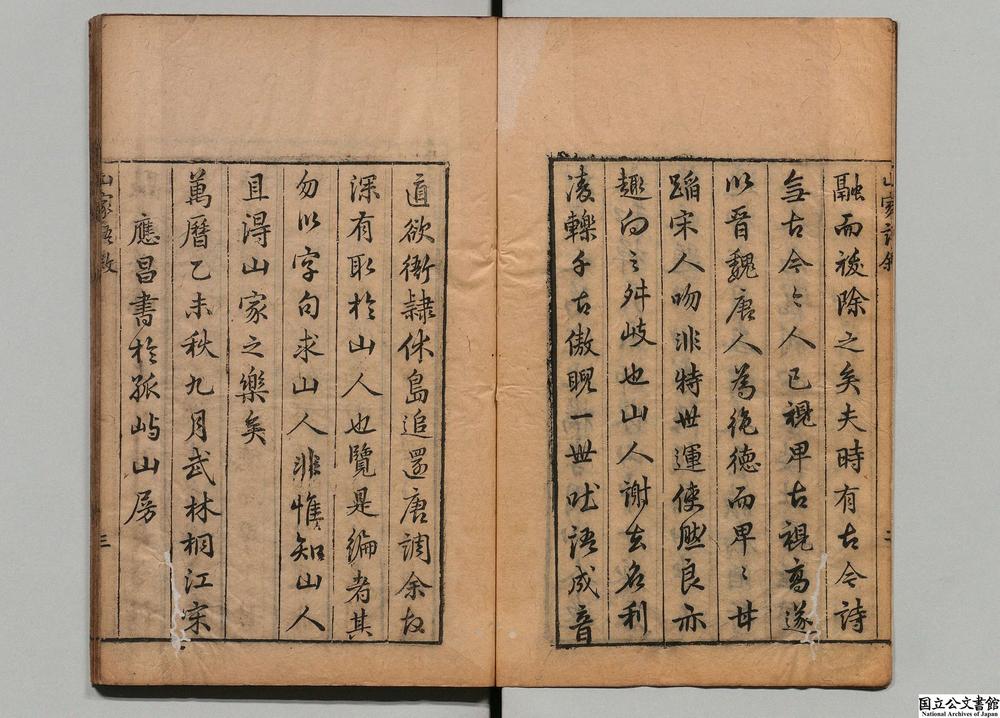 融而後除之矣夫時有古今詩
無古今々人已視卑古視高遂
以晉魏唐人為絶德而卑々甘
蹈宋人吻非特世運使然良亦
趣向之舛岐也山人謝去名利
凌轢千古傲睨一世吐語成音
直欲衙隷休島追還唐調余故
深有取於山人也覽是編者其
勿以字句求山人非惟知山人
且得山家之樂矣
萬曆乙未秋九月武林桐江宋
應昌書於孤屿山房
山家語敘
二
三
国立公文書館
National Archives of Japan